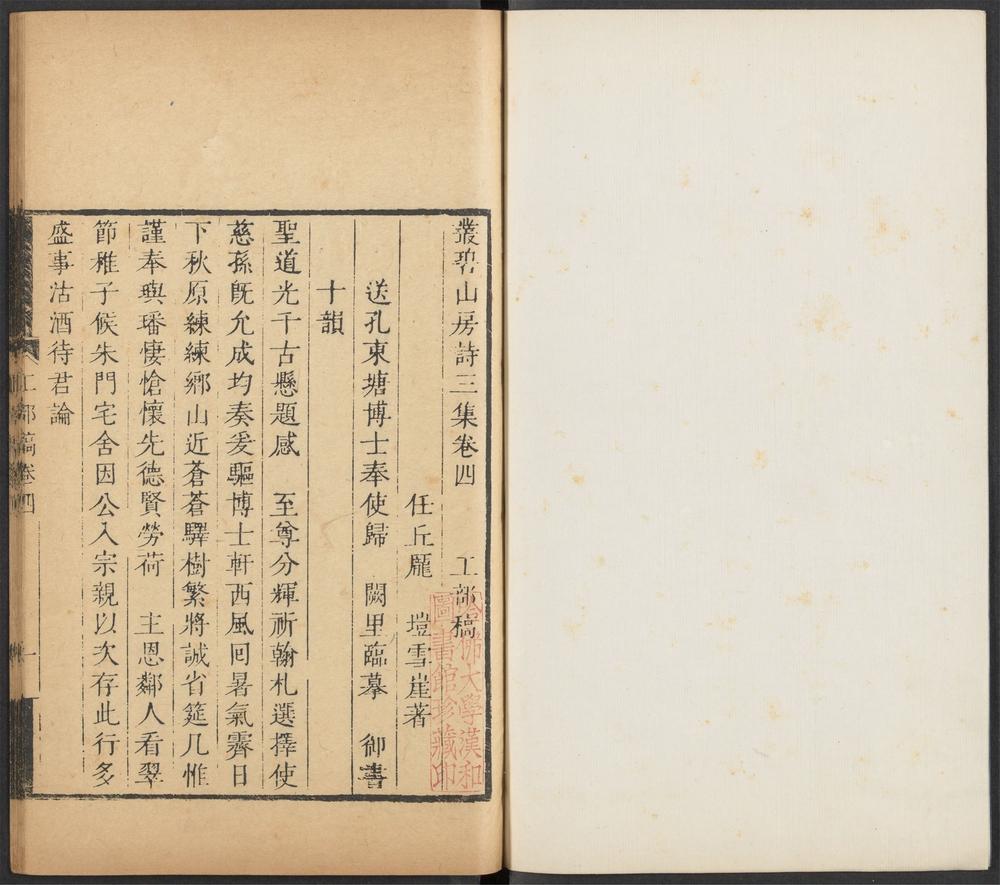 叢碧山房詩三集卷四　工部稿
任丘龎　塏雪崖著
送孔東塘博士奉使歸　闕里臨摹　御書
十韻
聖道光千古懸題感　至尊分輝祈翰札選擇使
慈孫旣允成均奏爰驅博士軒西風囘暑氣霽日
下秋原練練鄉山近蒼蒼驛樹繁將誠省筵几惟
謹奉璵璠悽愴懷先德賢勞荷　主恩鄰人看翠
節稚子候朱門宅舍因公入宗親以次存此行多
盛事沽酒待君論
工部稿卷四
一
哈佛大學漢和
圖書館珍藏印